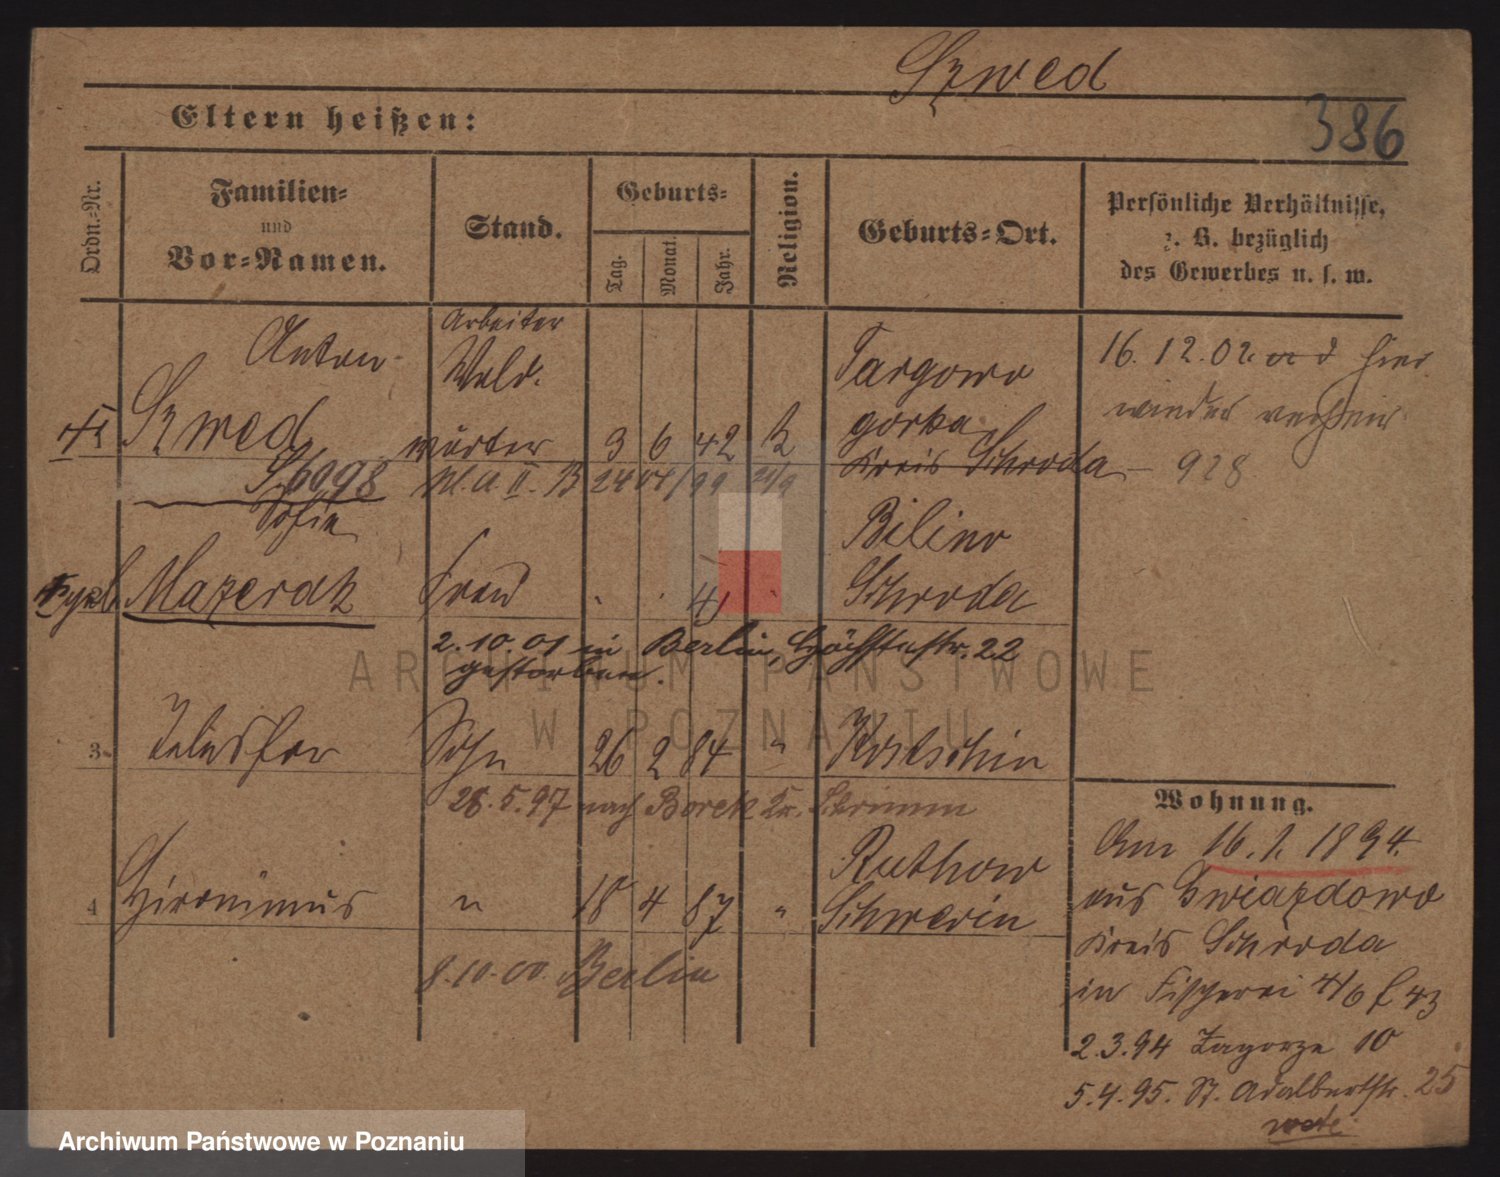 Szwed
386
Eltern heißen:
Ordn.-Nr.
Familien-
und
Vor-Namen.
Stand.
Geburts-
Tag.
Monat.
Jahr.
Religion.
Geburts-Ort.
Persönliche Verhältnisse,
z. B. bezüglich
des Gewerbes u. s. w.
Anton
Szwed
Arbeiter
Wald-
wärter
3 6 42 K
Targowo
gorka
Kreis Schroda
16. 12. 02 hier
wieder
928
Sofie
Mazerak
Frau
" " 41 "
Bilino
Schroda
2.10.01 in Berlin, 22
gestorben.
3 Telesfor Sohn 26 2 84 " Kostschin
28.5.97 nach Borek Kr. Schrimm
4 Hieronimus " 18 4 87 "
Schwerin
8.10.00 Berlin
Wohnung.
Am 16. 1. 1894.
aus Gwiazdowo
Kreis Schroda
in Fischerei 4/6 f 43
2.3.94 Zagorze 10
5.4.95. St. Adalbertstr. 25
ARCHIWUM PAŃSTWOWE
W POZNANIU
Archiwum Państwowe w Poznaniu